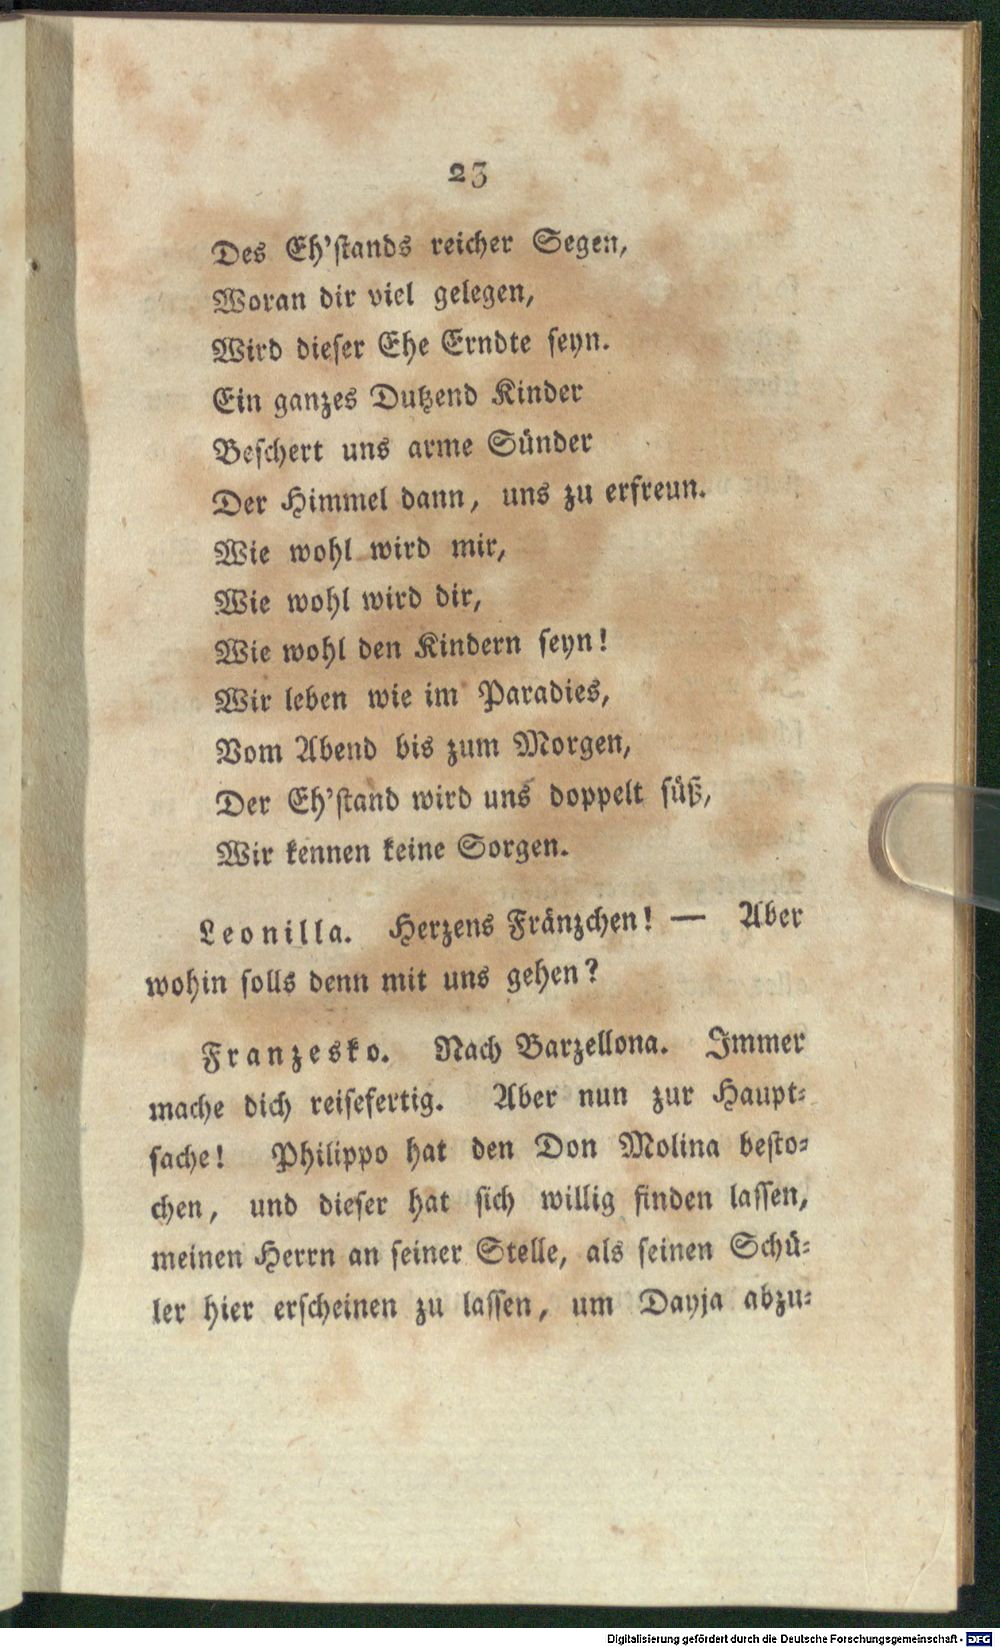 23
Des Eh'stands reicher Segen,
Woran dir viel gelegen,
Wird dieser Ehe Erndte seyn.
Ein ganzes Dutzend Kinder
Beschert uns arme Sünder
Der Himmel dann, uns zu erfreun.
Wie wohl wird mir,
Wie wohl wird dir,
Wie wohl den Kindern seyn!
Wir leben wie im Paradies,
Vom Abend bis zum Morgen,
Der Eh'stand wird uns doppelt süß,
Wir kennen keine Sorgen.
Leonilla. Herzens Fränzchen! — Aber
wohin solls denn mit uns gehen?
Franzesko. Nach Barzellona. Immer
mache dich reisefertig. Aber nun zur Haupt-
sache! Philippo hat den Don Molina besto-
chen, und dieser hat sich willig finden lassen,
meinen Herrn an seiner Stelle, als seinen Schü-
ler hier erscheinen zu lassen, um Dayja abzu-
Digitalisierung gefördert durch die Deutsche Forschungsgemeinschaft - DFG